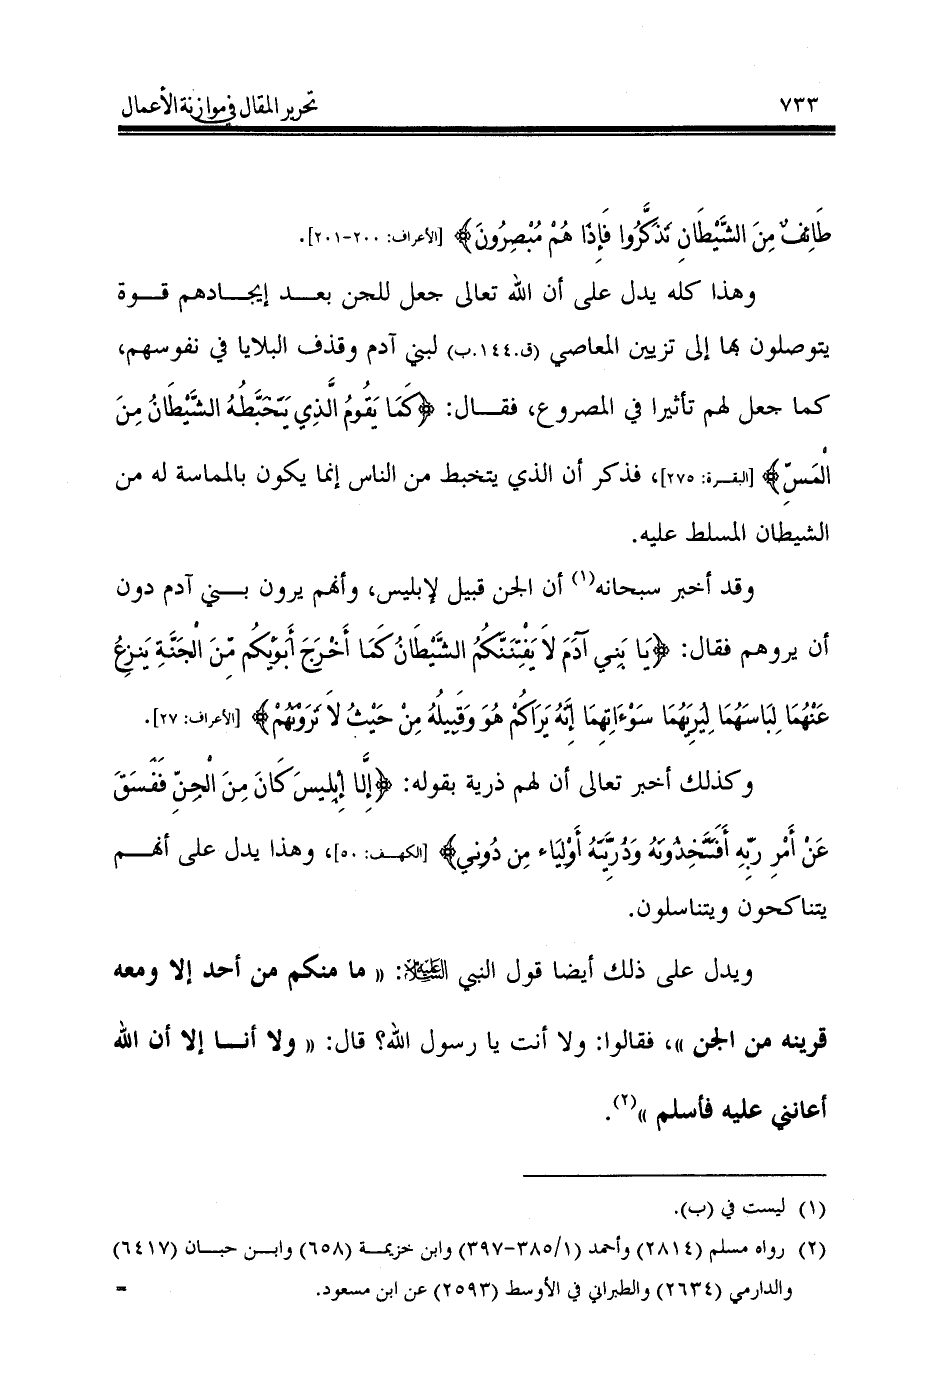 ٧٣٣
تحرير المقال في موازنة الأعمال
طَائِفٌ مِنَ الشَّيْطَانِ تَذَكَّرُوا فَإِذَا هُمْ مُبْصِرُونَ﴾ [الأعراف: ٢٠٠-٢٠١].
وهذا كله يدل على أن الله تعالى جعل للجن بعد إيجادهم قوة
يتوصلون بها إلى تزيين المعاصي (ق.١٤٤.ب) لبني آدم وقذف البلايا في نفوسهم،
كما جعل لهم تأثيرا في المصروع، فقال: ﴿كَمَا يَقُومُ الَّذِي يَتَخَبَّطُهُ الشَّيْطَانُ مِنَ
الْمَسِّ﴾ [البقرة: ٢٧٥]، فذكر أن الذي يتخبط من الناس إنما يكون بالمماسة له من
الشيطان المسلط عليه.
وقد أخبر سبحانه(١) أن الجن قبيل لإبليس، وأنهم يرون بني آدم دون
أن يروهم فقال: ﴿يَا بَنِي آدَمَ لاَ يَفْتِنَنَّكُمُ الشَّيْطَانُ كَمَا أَخْرَجَ أَبَوَيْكُم مِّنَ الْجَنَّةِ يَنزِعُ
عَنْهُمَا لِبَاسَهُمَا لِيُرِيَهُمَا سَوْءَاتِهِمَا إِنَّهُ يَرَاكُمْ هُوَ وَقَبِيلُهُ مِنْ حَيْثُ لاَ تَرَوْنَهُمْ﴾ [الأعراف: ٢٧].
وكذلك أخبر تعالى أن لهم ذرية بقوله: ﴿إِلَّا إِبْلِيسَ كَانَ مِنَ الْجِنِّ فَفَسَقَ
عَنْ أَمْرِ رَبِّهِ أَفَتَتَّخِذُونَهُ وَذُرِّيَّتَهُ أَوْلِيَاء مِن دُونِي﴾ [الكهف: ٥٠]، وهذا يدل على أنهم
يتناكحون ويتناسلون.
ويدل على ذلك أيضا قول النبي ﷺ: « ما منكم من أحد إلا ومعه
قرينه من الجن »، فقالوا: ولا أنت يا رسول الله؟ قال: « ولا أنا إلا أن الله
أعانني عليه فأسلم »(٢).
(١) ليست في (ب).
(٢) رواه مسلم (٢٨١٤) وأحمد (٣٨٥/١-٣٩٧) وابن خزيمة (٦٥٨) وابن حبان (٦٤١٧)
والدارمي (٢٦٣٤) والطبراني في الأوسط (٢٥٩٣) عن ابن مسعود. =